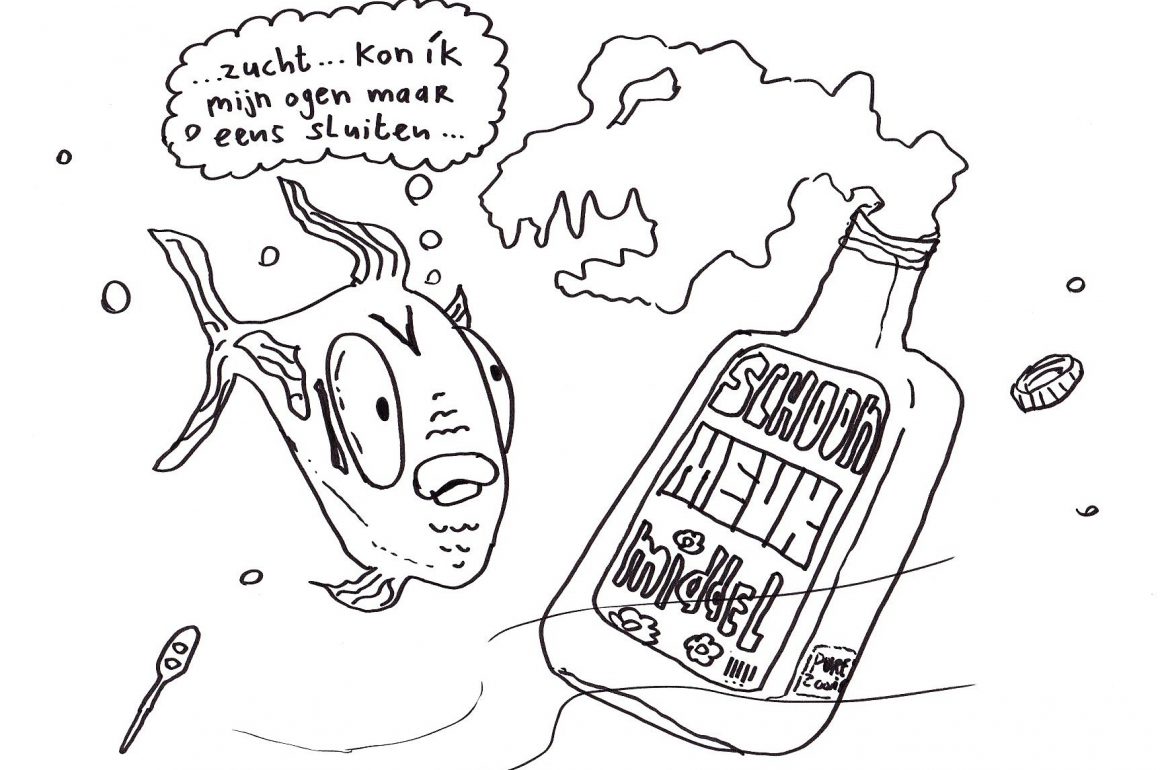 ...zucht... kon ík
mijn ogen maar
eens sluiten...
SCHOON
MEUK
middEL
PURE